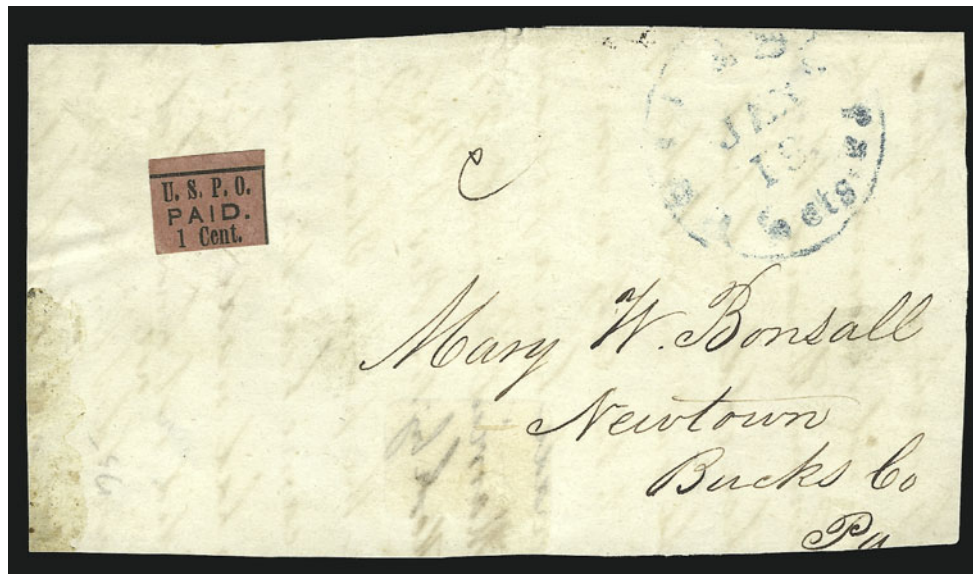 U. S. P. O.
PAID.
1 Cent.
JAN
18
cts
Mary W. Bonsall
Newtown
Bucks Co
Pa